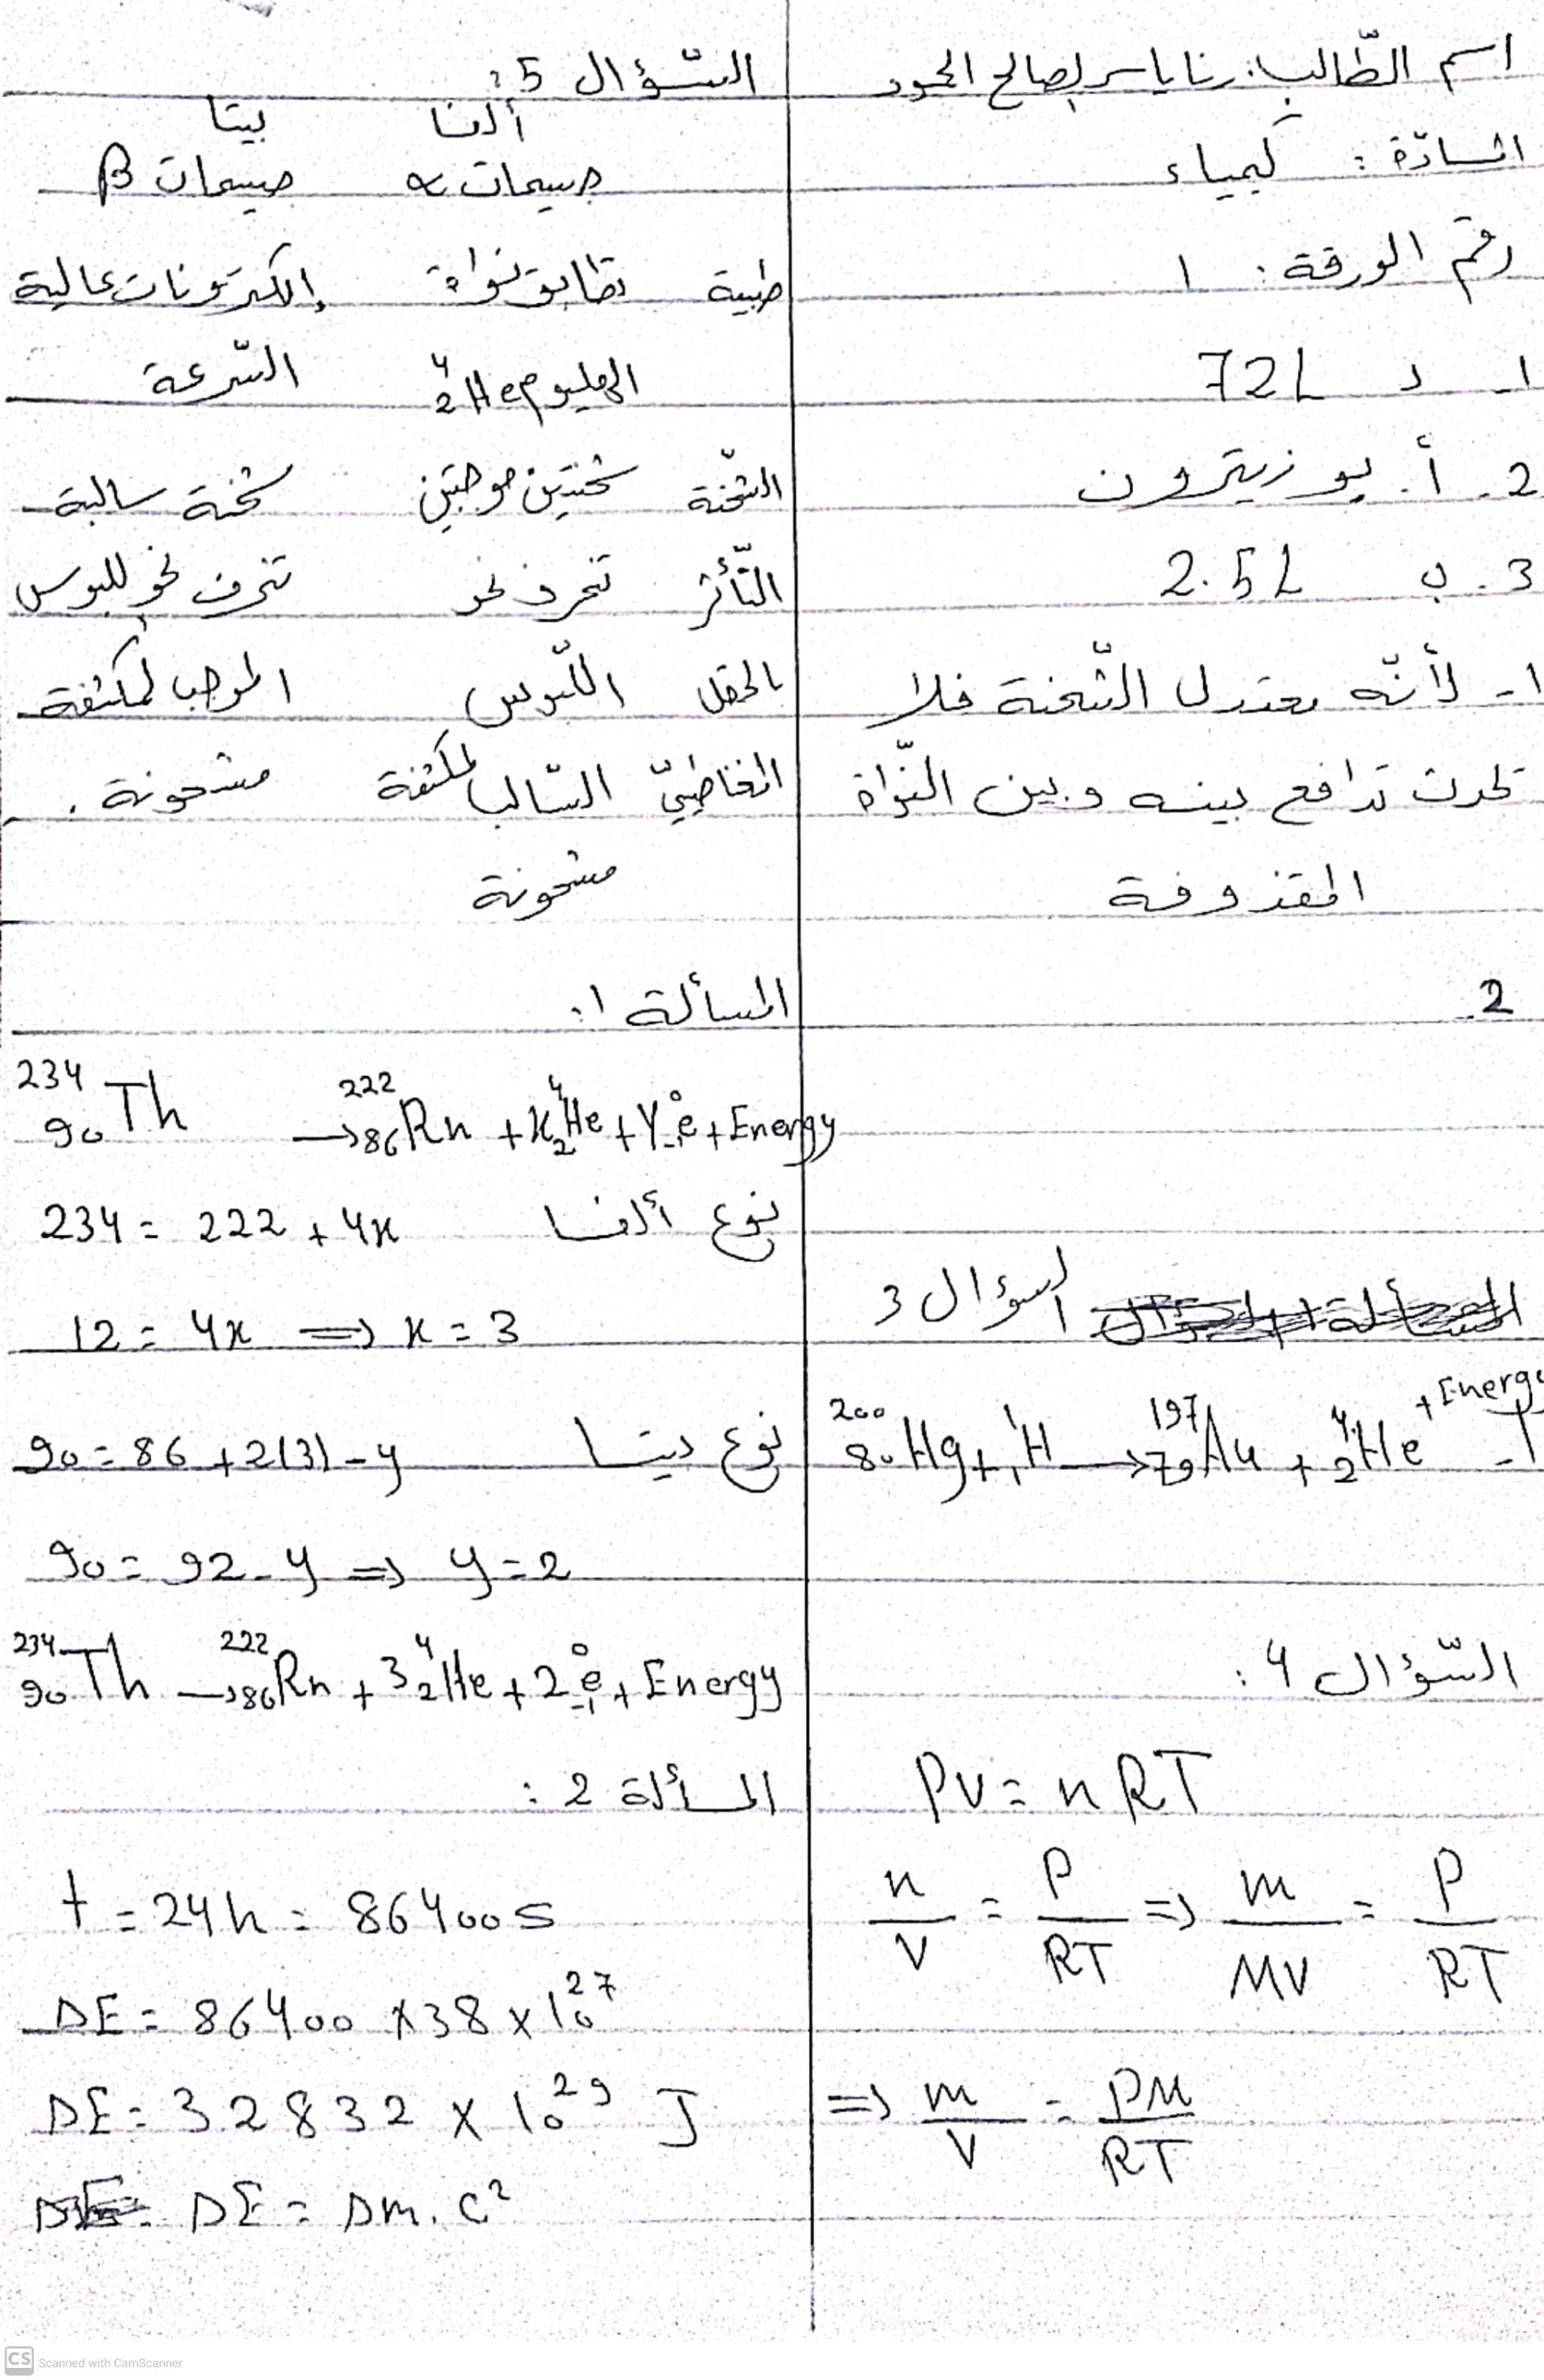 اسم الطّالب: رنا ياسر صالح الحمود
المادّة: كيمياء
رقم الورقة: ١
١ـ د 72L
2. أ. بوزيترون
3. ب 2.5L
١ـ لأنّه معتدل الشّحنة فلا
تحدث تدافع بينه وبين النّواة
المقذوفة
2.
السؤال 3
١ـ ²⁰⁰₈₀Hg + ¹₁H → ¹⁹⁷₇₉Au + ⁴₂He + Energy
السّؤال 4:
PV = nRT
n/V = P/RT => m/MV = P/RT
=> m/V = PM/RT
السّؤال 5:
ألفا بيتا
جسيمات α جسيمات β
طبيعة تطابق نواة إلكترونات عالية
الهليوم ⁴₂He السّرعة
الشّحنة شحنتين موجبتين شحنة سالبة
التّأثّر تنحرف نحو تنحرف نحو اللبوس
بالحقل اللّبوس الموجب لمكثفة
المغناطيسيّ السّالب لمكثفة مشحونة.
مشحونة
المسألة ١:
²³⁴₉₀Th → ²²²₈₆Rn + x⁴₂He + y⁰₋₁e + Energy
نوع ألفا 234 = 222 + 4x
12 = 4x => x = 3
نوع بيتا 90 = 86 + 2(3) - y
90 = 92 - y => y = 2
²³⁴₉₀Th → ²²²₈₆Rn + 3⁴₂He + 2⁰₋₁e + Energy
المسألة 2:
t = 24h = 86400s
ΔE = 86400 × 38 × 10²⁷
ΔE = 32832 × 10²⁹ J
ΔE = Δm.c²
CS Scanned with CamScanner